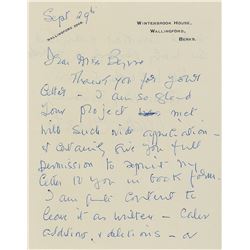 Sept 29th
WINTERBROOK HOUSE,
WALLINGFORD,
BERKS.
WALLINGFORD
Dear Miss Byrne
Thank you for your
letter - I am so glad
your project has met
with such wide appreciation -
& certainly give you full
permission to reprint my
letter to you in book form.
I am quite content to
leave it as written - Later
additions & deletions - or